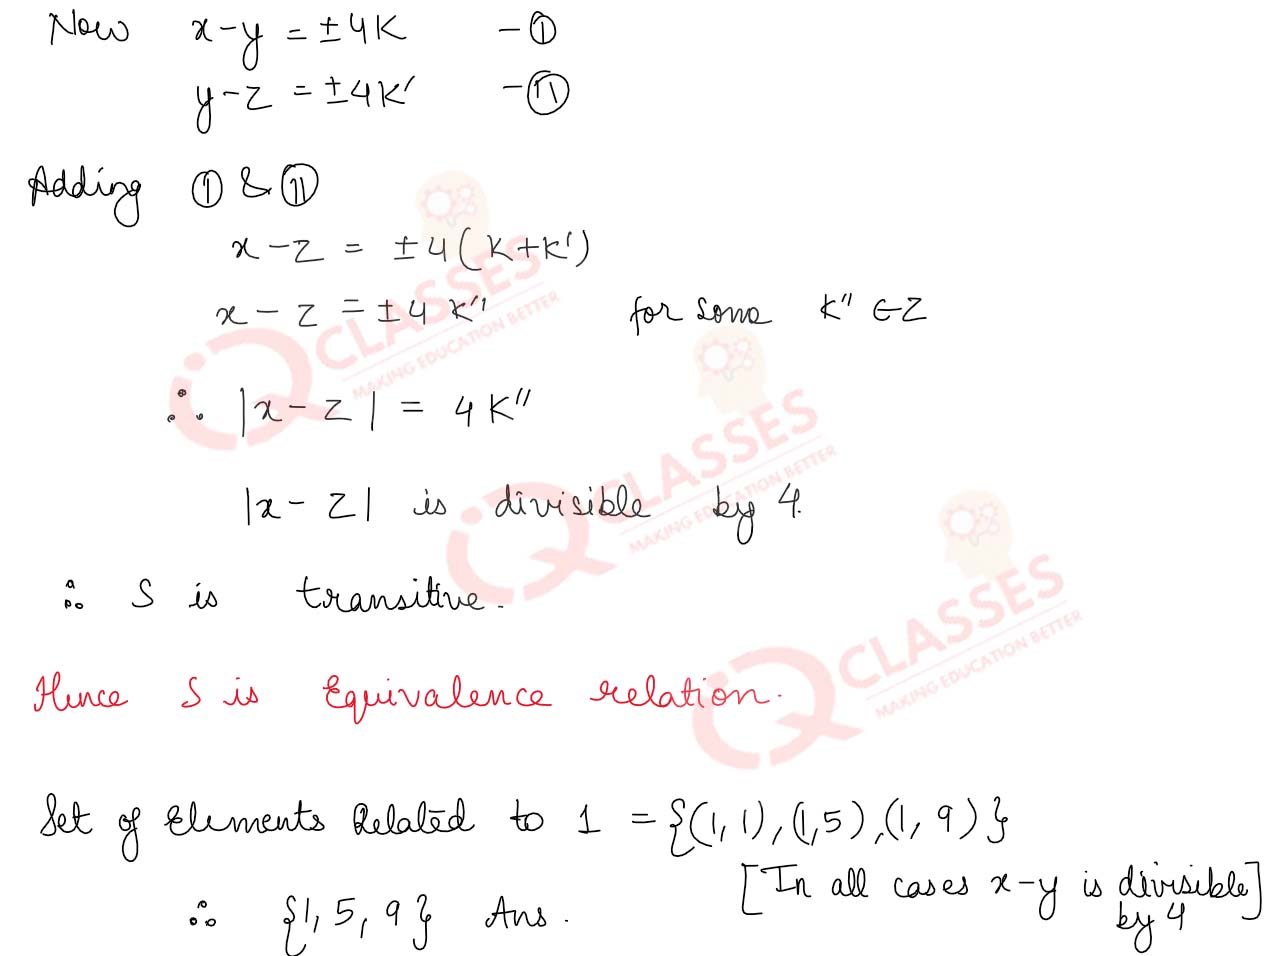 Now x-y = ±4K -Ⓘ
y-z = ±4K' -Ⓘ Ⓘ
Adding Ⓘ & ⒾⒾ
x-z = ±4(K+K')
x-z = ±4K'' for some K'' ∈ Z
∴ |x-z| = 4K''
|x-z| is divisible by 4.
∴ S is transitive.
Hence S is Equivalence relation.
Set of Elements Related to 1 = {(1,1),(1,5),(1,9)}
[In all cases x-y is divisible by 4]
∴ {1,5,9} Ans.
iQ CLASSES
MAKING EDUCATION BETTER
iQ CLASSES
MAKING EDUCATION BETTER
iQ CLASSES
MAKING EDUCATION BETTER